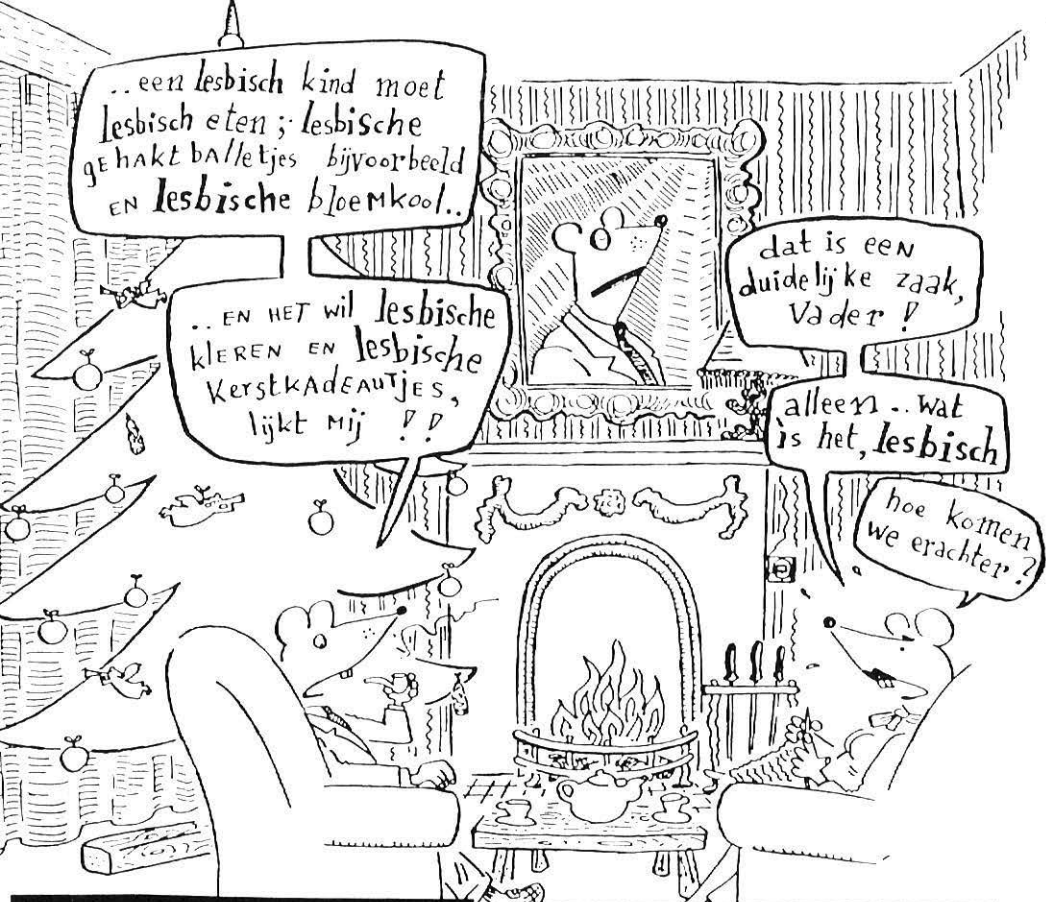 ..een lesbisch kind moet
lesbisch eten; lesbische
gehaktballetjes bijvoorbeeld
en lesbische bloemkool..
..en het wil lesbische
kleren en lesbische
kerstkadeautjes,
lijkt mij !!
dat is een
duidelijke zaak,
Vader !
alleen.. wat
is het, lesbisch
hoe komen
we erachter?